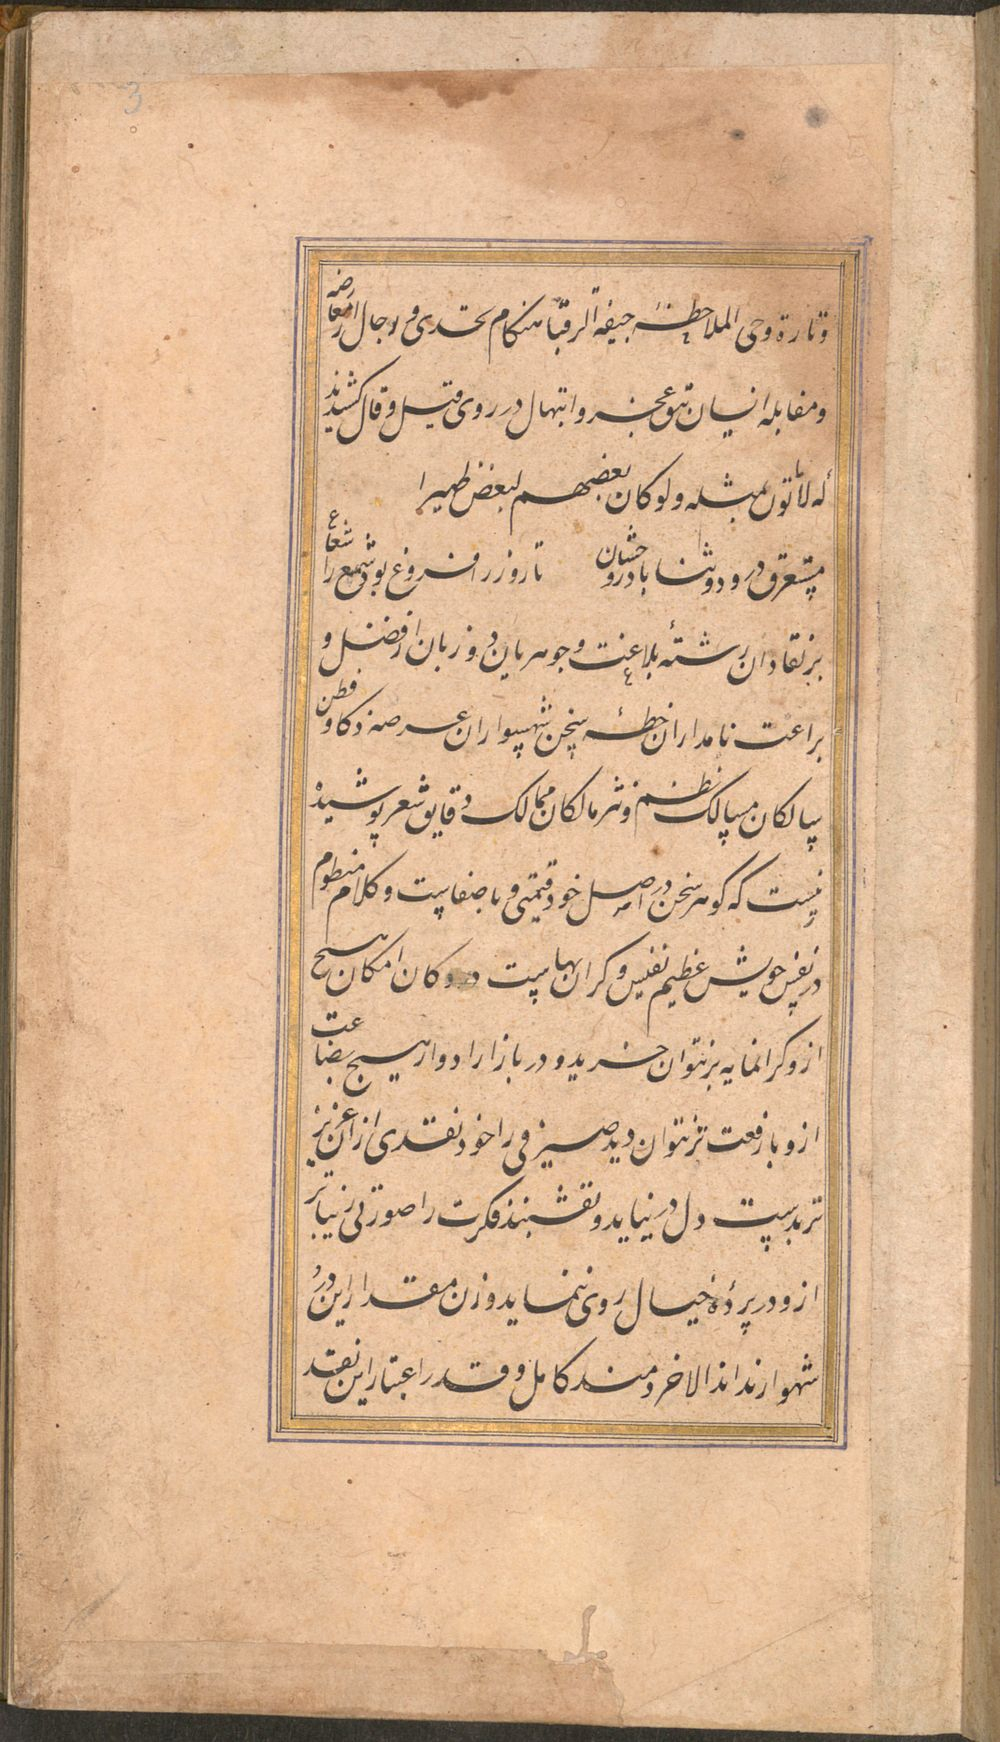 3
وتارة وحی الملاحظه خیفة الرقبا هنگام تحدی و مجال معارضه را
و مقابله ایشان تتق عجز و ابتهال در روی قیل و قال کشیدند
که لا یأتون بمثله ولو کان بعضهم لبعض ظهیرا
مستغرق درود و ثنا باد روحشان تا روز را فروغ بود شمع را شعاع
بر نقادان رشتهٔ بلاغت و جوهریان دو زبان از فضل و
براعت نامداران خطهٔ سخن شهسواران عرصه ذکا و فطن
سالکان مسالک نظم و نثر مالکان ممالک دقایق شعر پوشیده
نیست که گوهر سخن در اصل خود قیمتی و با صفاست و کلام منظوم
در نفس خویش عظیم نفیس و گران بهاست در دکان امکان هیچ
ازو گرانمایه بر نتوان خرید و در بازار ادوار هیچ بضاعت
ازو با رفعت تر نتوان دید صیرفی را خود نقدی از آن عزیز
تر بدست دل در نیاید و نقشبند فکرت را صورتی زیباتر
ازو در پردهٔ خیال روی ننماید وزن مقدار این در
شهوار نداند الا خردمند کامل و قدر اعتبار این نقد